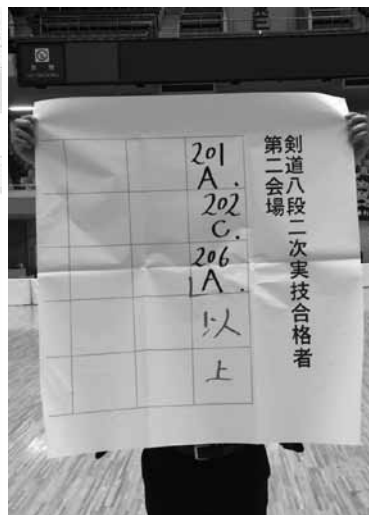 剣道八段二次実技合格者
第二会場
201
A.
202
C.
206
A.
以
上